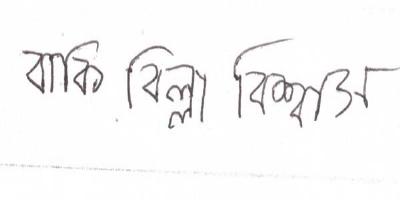 বাকি বিল্লা বিশ্বাস